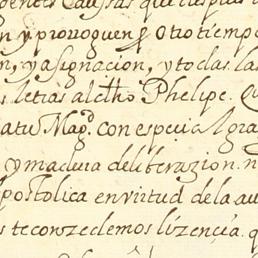 n y provoguen p Otro tiemp
n, y asignacion, y todas la
s letras al dho Phelipe. Q
atu Mag.d con espeçial gra
y madura deliberazion. n
postolica en virtud de la au
s te conzedemos lizençia. q